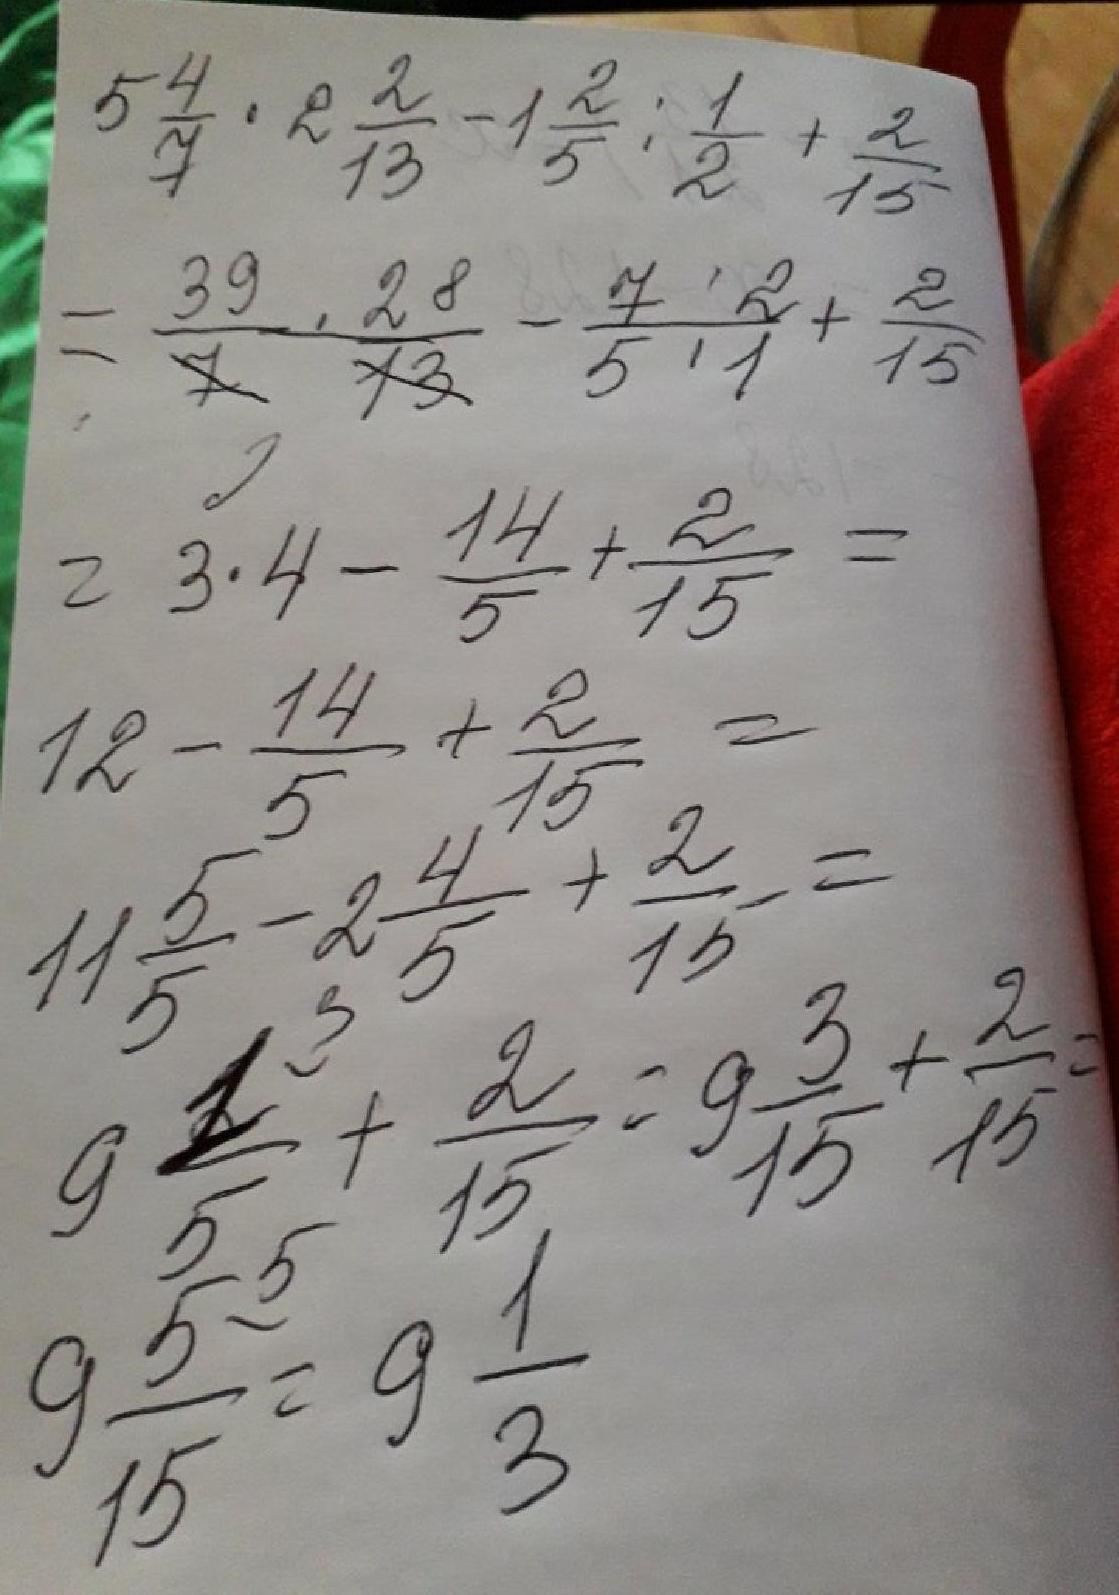 5 4/7 · 2 2/13 - 1 2/5 : 1/2 + 2/15
= 39 · 28 / 7 · 13 - 7 · 2 / 5 · 1 + 2/15
= 3 · 4 - 14/5 + 2/15 =
12 - 14/5 + 2/15 =
11 5/5 - 2 4/5 + 2/15 =
9 1/5 ⌣3 + 2/15 = 9 3/15 + 2/15 =
9 5/15 ⌣5 = 9 1/3